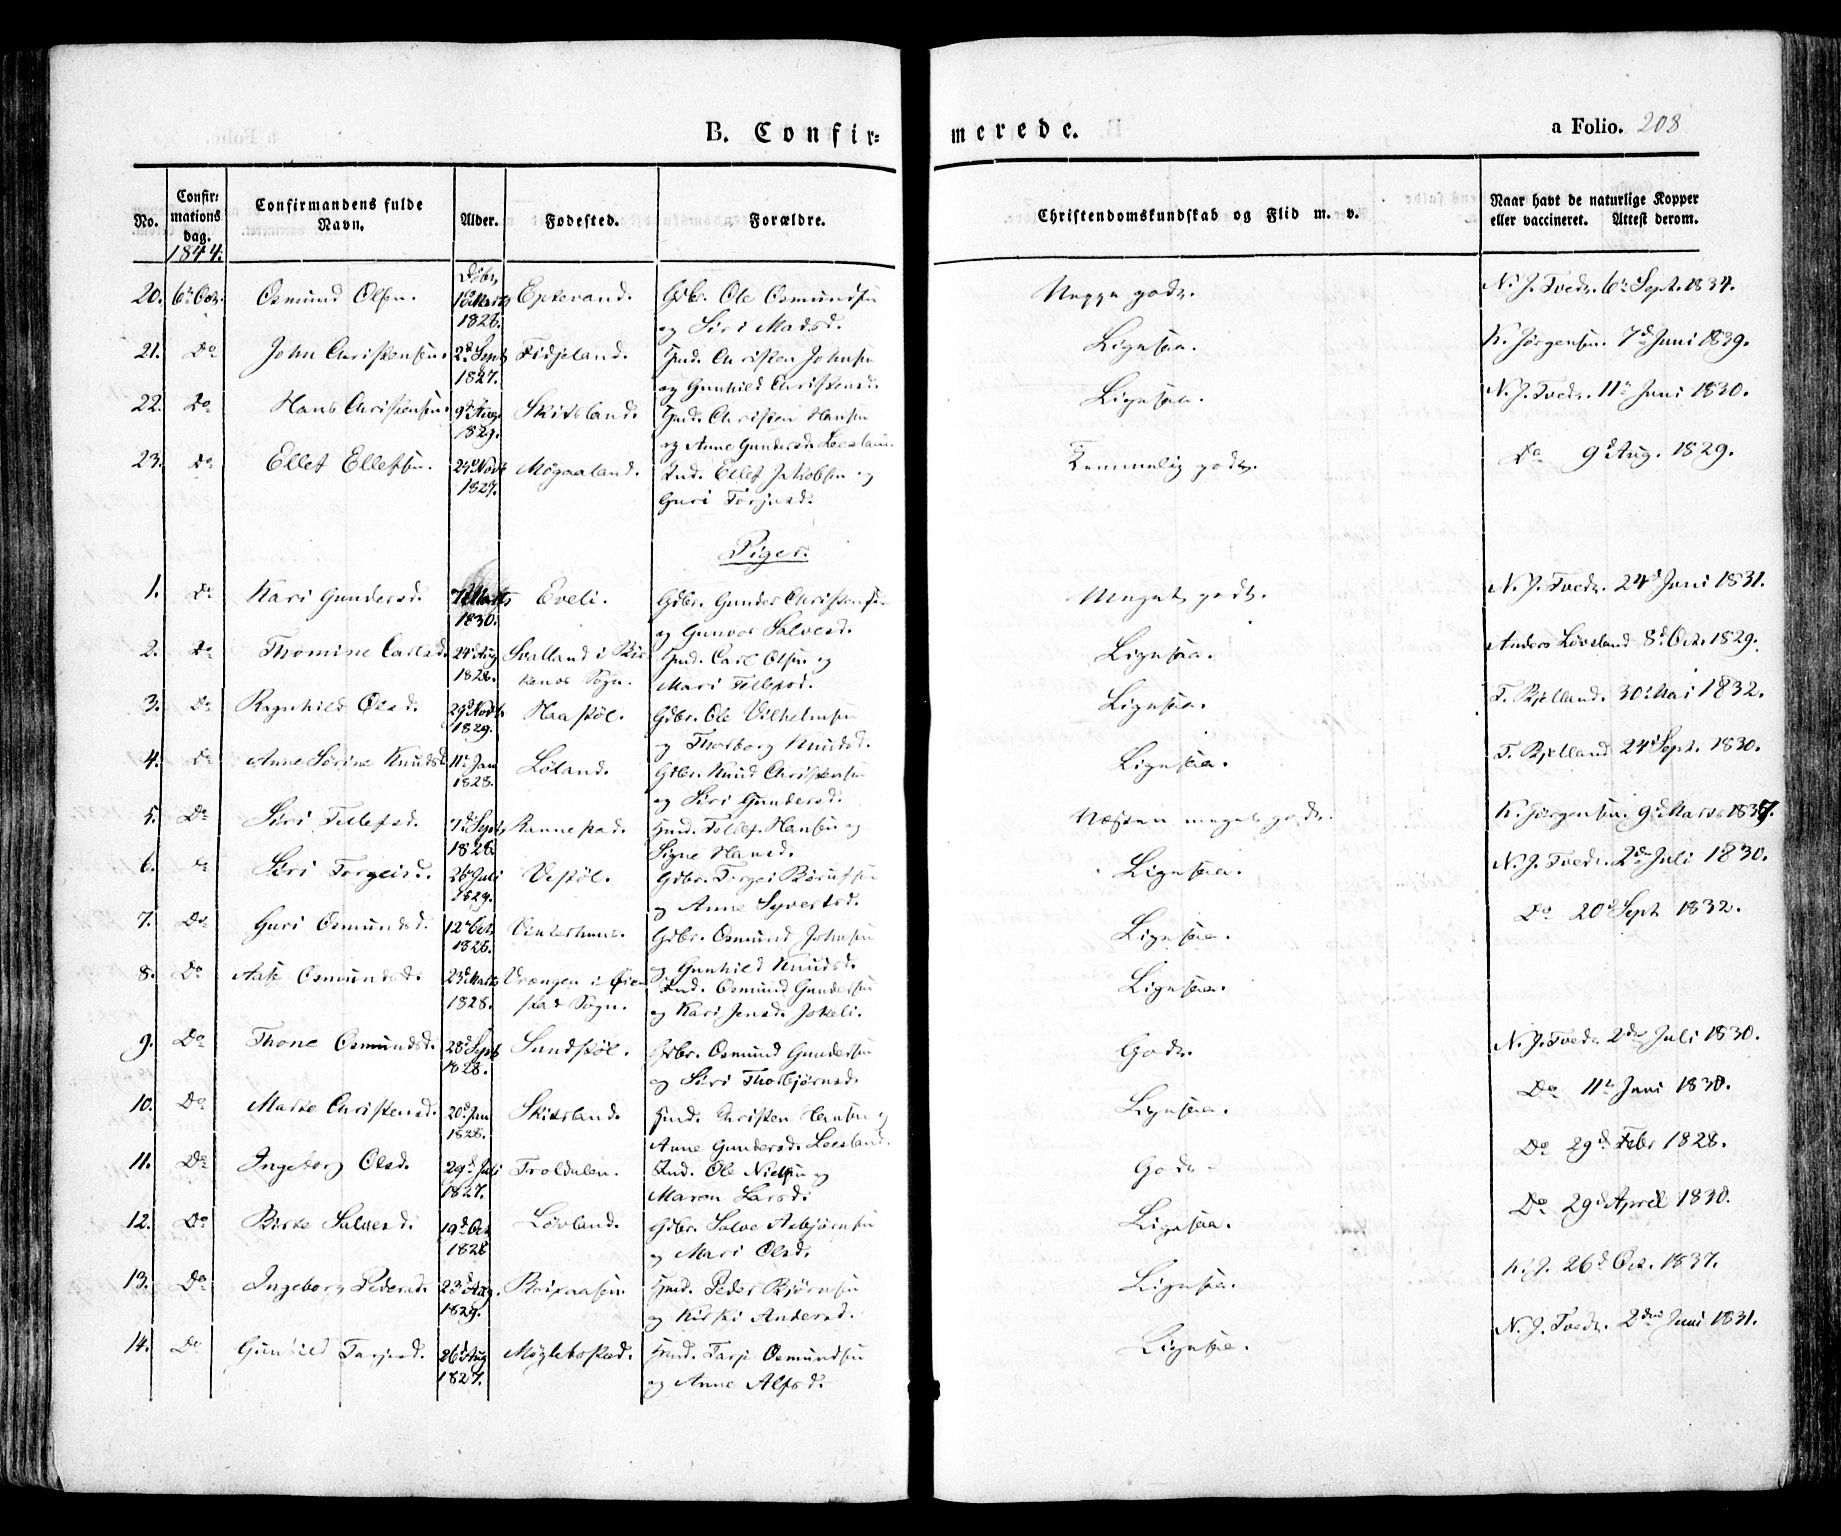 B. Confir=
merede.
a Folio. 208
No.
Confir=
mations
dag.
1844.
Confirmandens fulde
Navn.
Alder.
Fødested.
Forældre.
Christendomskundskab og Flid m. v.
Naar havt de naturlige Kopper
eller vaccineret. Attest derom.
20. Osmund Olsen. 1828. Gdbr. Ole Osmundsen
og Siri Madsd.
N. J. Tvedt. 6te Sept. 1834.
21. Do John Christensen. 2d Sept 1827. Fidjeland. Hmd. Christen Johnsen
og Gunhild Christensd.
Ligesaa. K. Jørgensen. 7d Juni 1839.
22. Do Hans Christensen. 9d Aug 1829. Skitsland. Hmd. Christen Hansen
og Anne Gundersd.
Ligesaa. N. J. Tvedt. 11te Juni 1830.
23. Do Ellef Ellefsen. 24d Novb 1827. Møgaaland. Ind. Ellef Jakobsen og
Guri Torjusd.
Temmelig godt. Do 9d Aug. 1829.
Piger.
1. Do Kari Gundersd. 1830. Eveli. Gdbr. Gunder Christensen
og Gunvor Salvesd.
Meget godt. N. J. Tvedt. 24d Juni 1831.
2. Do Thomine Carlsd. 24d Aug 1828. Svalland i Bir
kenes Sogn.
Hmd. Carl Olsen og
Mari Tellefsd.
Ligesaa. Anders Løvland 8d Oct. 1829.
3. Do Ragnhild Olsd. 29d Novb. 1829. Haastøl. Gdbr. Ole Vilhelmsen
og Thorborg Knudsd.
Ligesaa. T. Bjelland. 30d Mai 1832.
4. Do Anne Sørine Knudsd. 11te Jan 1828. Løland. Gdbr. Knud Christensen
og Siri Gundersd.
Ligesaa. T. Bjelland 24d Sept. 1830.
5. Do Siri Tellefsd. 7d Sept 1828. Rannestad. Hmd. Tellef Hansen og
Signe Hansd.
Næsten meget godt. K. Jørgensen. 9d Marts
6. Do Siri Torgeisd. 26d Juli 1829. Vestøl. Gdbr. Torgei
og Anne Syvertsd.
Ligesaa. N. J. Tvedt. 2d Juli 1830.
7. Do Guri Osmundsd. 12te Oct. 1828. Vinterhuus. Gdbr. Osmund Johnsen
og Gunhild Knudsd.
Ligesaa. Do 20d Sept 1832.
8. Do Aase Osmundsd. 23d Marts 1828. Vrængen i Øie
stad Sogn.
Ind. Osmund Gundersen
og Kari Jensd. Jskeli.
Ligesaa.
9. Do Thone Osmundsd. 28d Sept 1828. Sundstøl. Gdbr. Osmund Gundersen
og Siri Thorbjørnsd.
Godt. N. J. Tvedt 2den Juli 1830.
10. Do Marte Christensd. 20d Jan 1828. Skitsland. Hmd. Christen Hansen og
Anne Gundersd.
Ligesaa. Do 11te Juni 1830.
11. Do Ingeborg Olsd. 29d Juli 1827. Troldalen. Ind. Ole Nielsen og
Maren Larsd.
Godt. Do 29d Febr 1828.
12. Do Birte Salvesd. 19d Oct 1828 Løvland. Gdbr. Salve Asbjørnsen
og Mari Olsd.
Ligesaa. Do 29d April 1830.
13. Do Ingeborg Pedersd. 23d Aug. 1829. Hmd. Peder Bjørnsen
og Kirsti Andersd.
Ligesaa. K. J. 26d Oct. 1837.
14. Do Gunhild Tarjesd. 26d Aug 1827. Møglebostad. Hmd. Tarje Osmundsen
og Anne Alfsd.
Ligesaa. N. J. Tvedt. 2den Juni 1831.